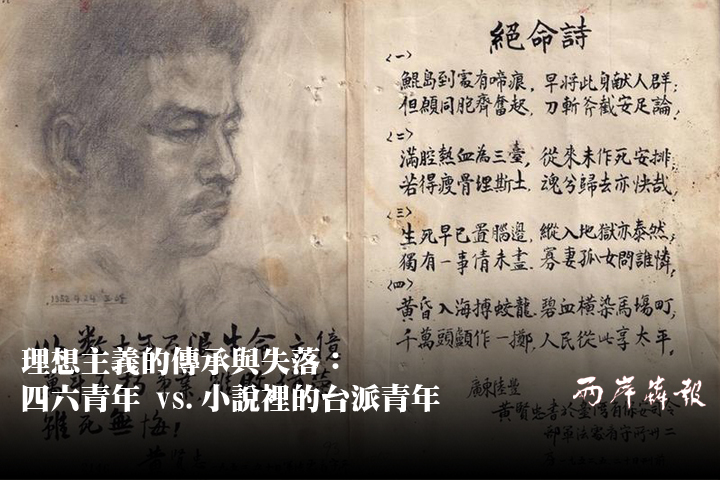 絕命詩
<一>
鯤島到處有啼痕，早將此身献人群；
但願同胞齊奮起，刀斬斧截安足論，
<二>
滿腔熱血為三臺，從來未作死安排；
若得瘦骨埋斯土，魂兮歸去亦快哉，
<三>
生死早已置腦邊，縱入地獄亦泰然；
獨有一事情未盡，寡妻孤女問誰憐，
<四>
黃昏入海搏蛟龍，碧血橫染馬場町，
千萬頭顱作一擲，人民從此享太平，
廣東陸豐
黃賢忠書於臺灣省保安司令
部軍法處看守所廿二
1952.4.24
雖死無悔！
黃賢忠
理想主義的傳承與失落：
四六青年 vs. 小說裡的台派青年
兩岸犇報